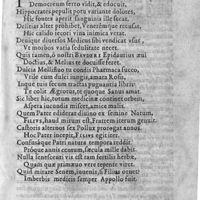 Democreum ferro vidit, & edocuit,
Hippocrates populi potu variante dolores,
Hic fontes aperit sanguinis ille secat.
Delitias alter prohibet, Venerémque recusat,
Hic calido recori vina minica vetat.
Denique diuersis Medicus sibi vendicat vsus,
Vt morbos varia sedulitate necet.
Qui tamen, ô nostri Epidautius æui
Doctius, & Melius te docuisse feret.
Dulcia Mellifluo tu condis Pharmaca succo,
Vtile cum dulci iungis, amate Rosis,
Inque tuis succum tractas pugnantia libris:
Te colit Ægrotus, te quoque Sanus amat.
Sic liber hic, totum medicinæ continet orbem,
Aspera iucundis miscet, amica malis.
Quem Pater ediderat diuino ex semine Natum,
FILIVS, haud minus est, Fratrem iterum genuit.
Castoris alternos sex Pollux prorogat annos,
Hoc Pater incepit, FILIVS egit opus.
Consuláque Patri natura tempora reddit
Próque annis centum, sæcula mille dabit.
Nulla senescenti vis est tam fertilis herbæ,
Quæis quæ primæuo vere tepente viret.
Quid mirare Senem, iuuenis, si Filius ornet?
Imberbis medicis semper Apollo fuit.